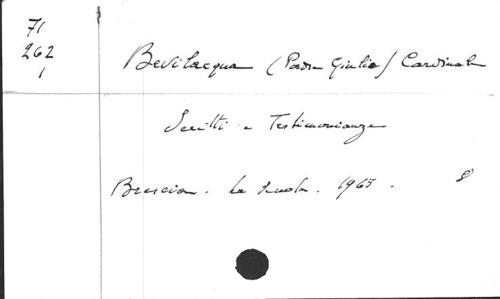 71
262
1
Bevilacqua (Padre Giulio) Cardinale
Scritti e Testimonianze
Brescia. La Scuola. 1965. 8°